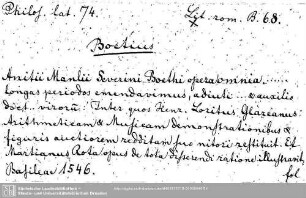 Philos. lat. 74.
Lit. rom. B. 68.
Boetius
Anitii Manlii Severini Boethi opera omnia .....
Longas periodos emendavimus, adiuti auxilio
doct. virorū. Inter quos Henr. Loritus Glareanus
Arithmeticam & Musicam demonstrationibus &
figuris auctiorem redditam suo nitori restituit. Et
Martianus Rota opus de tota disserendi ratione illustravit.
Basileae 1546. fol
Sächsische Landesbibliothek -
Staats- und Universitätsbibliothek Dresden